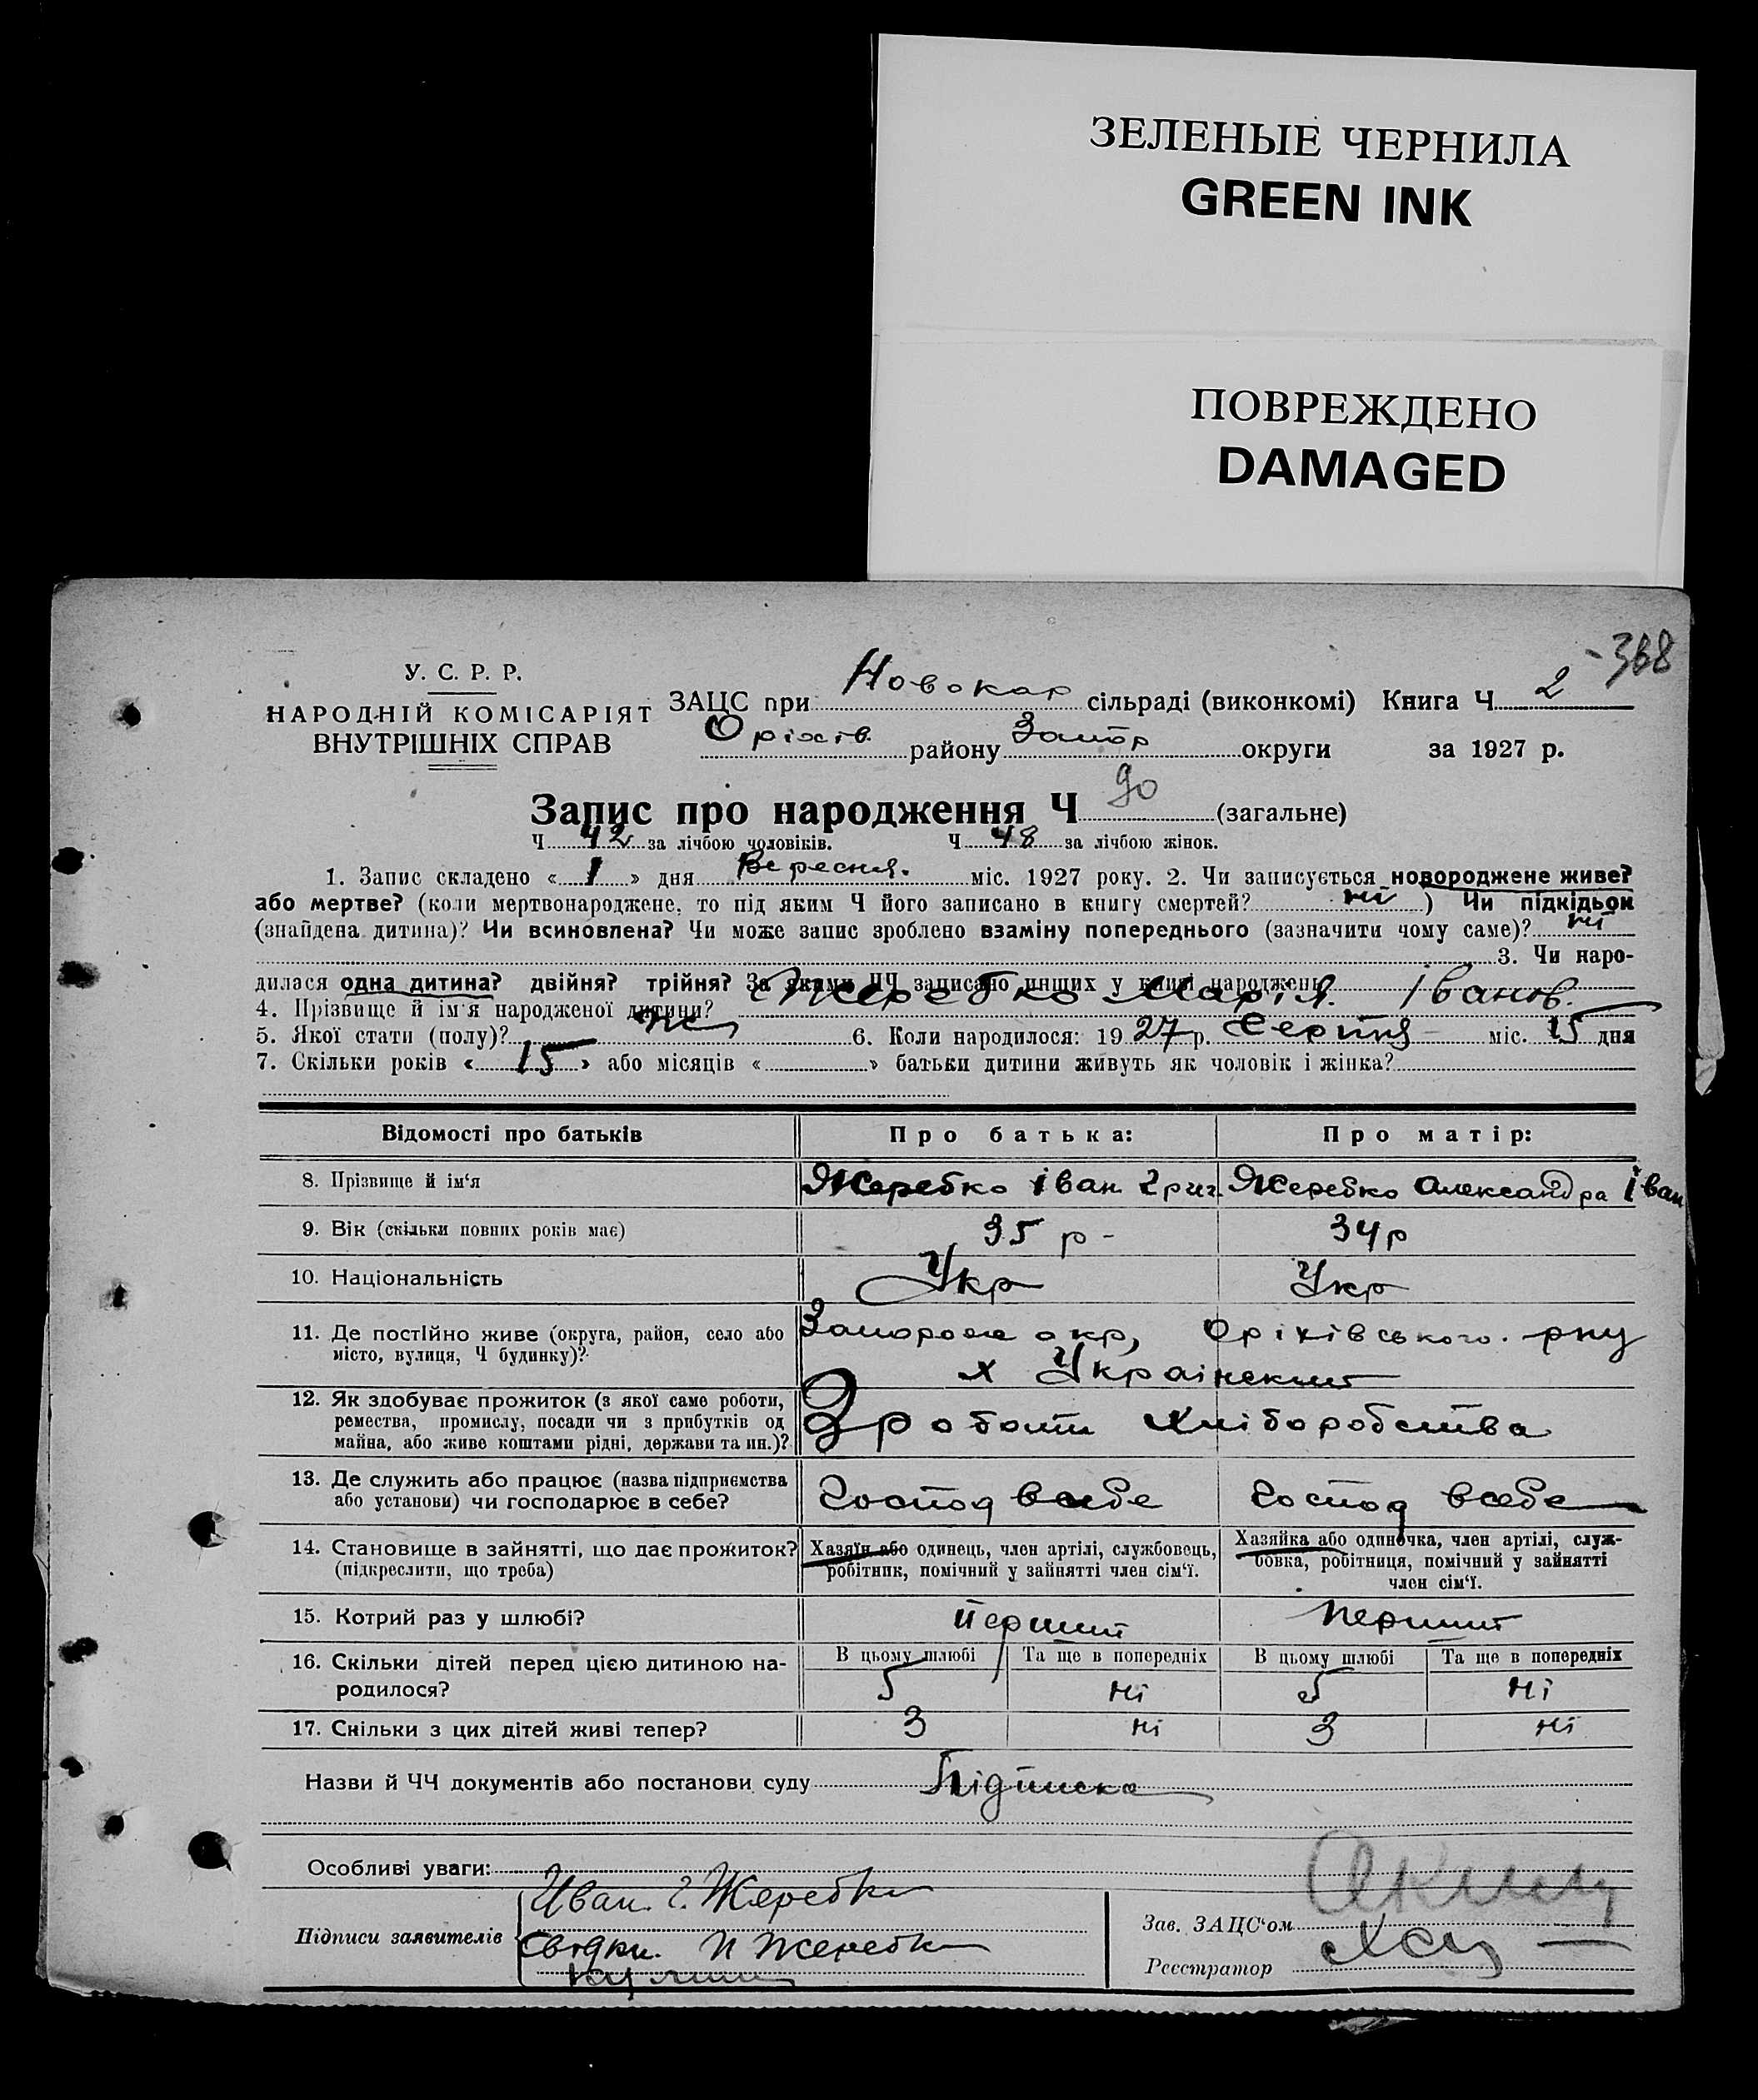 ЗЕЛЕНЫЕ ЧЕРНИЛА
GREEN INK
ПОВРЕЖДЕНО
DAMAGED
-368
У. С. Р. Р.
НАРОДНІЙ КОМІСАРІЯТ
ВНУТРІШНІХ СПРАВ
ЗАЦС при Новокар сільраді (виконкомі) Книга Ч. 2
Оріхів. району Запор округи за 1927 р.
Запис про народження Ч 90 (загальне)
Ч 42 за лічбою чоловіків. Ч 48 за лічбою жінок.
1. Запис складено « 1 » дня Вересня. міс. 1927 року. 2. Чи записується новороджене живе?
або мертве? (коли мертвонароджене, то під яким Ч його записано в книгу смертей? ні ) Чи підкідьок
(знайдена дитина)? Чи всиновлена? Чи може запис зроблено взаміну попереднього (зазначити чому саме)? ні
3. Чи наро-
дилася одна дитина? двійня? трійня? За якими ЧЧ записано инших у книзі народжень
4. Прізвище й ім'я народженої дитини? Жеребко Марія Іванов.
5. Якої стати (полу)? ж 6. Коли народилося: 19 27 р. Серпня міс. 15 дня
7. Скільки років « 15 » або місяців « » батьки дитини живуть як чоловік і жінка?
Відомості про батьків Про батька: Про матір:
8. Прізвище й ім'я Жеребко Іван Григ. Жеребко Александра Іван
9. Вік (скільки повних років має) 35 р - 34 р
10. Національність Укр Укр
11. Де постійно живе (округа, район, село або Запорож окр, Оріхівського. рну
місто, вулиця, Ч будинку)? х Украінский
12. Як здобуває прожиток (з якої саме роботи,
ремества, промислу, посади чи з прибутків од З роботи хліборобства
майна, або живе коштами рідні, держави та ин.)?
13. Де служить або працює (назва підприємства
або установи) чи господарює в себе? Господ всебе Господ всебе
14. Становище в зайнятті, що дає прожиток? Хазяїн або одинець, член артілі, службовець, Хазяйка або одиночка, член артілі, служ-
(підкреслити, що треба) робітник, помічний у зайнятті член сім'ї. бовка, робітниця, помічний у зайнятті
член сім'ї.
15. Котрий раз у шлюбі? Перший Перший
16. Скільки дітей перед цією дитиною на- В цьому шлюбі Та ще в попередніх В цьому шлюбі Та ще в попередніх
родилося? 5 ні 5 ні
17. Скільки з цих дітей живі тепер? 3 ні 3 ні
Назви й ЧЧ документів або постанови суду Підписка
Особливі уваги:
Иван. Г. Жеребко
Підписи заявителів Свідки. И Жеребко
Зав. ЗАЦС'ом
Реєстратор